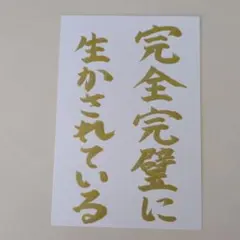 完全完璧に
生かされている